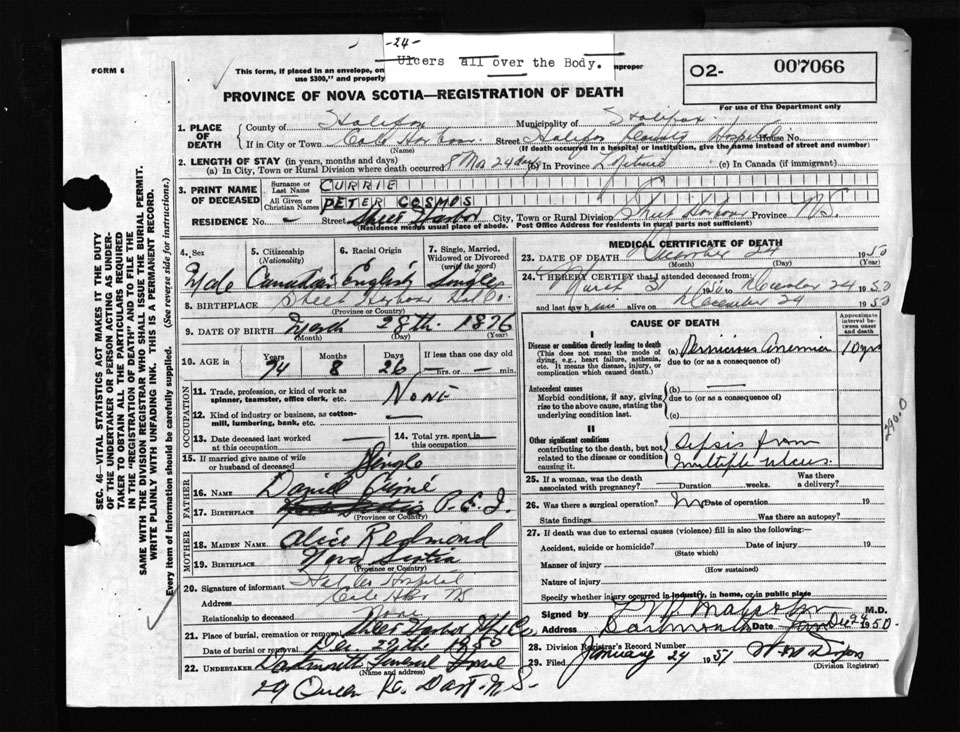 FORM 6
-24-
Ulcers all over the Body.
This form, if placed in an envelope, on improper
use $300," and properly
02- 007066
For use of the Department only
PROVINCE OF NOVA SCOTIA—REGISTRATION OF DEATH
1. PLACE OF DEATH
County of Halifax Municipality of Halifax
If in City or Town Cole Harbour Street Halifax County Hospital House No.
(Name) (If death occurred in a hospital or institution, give the name instead of street and number)
2. LENGTH OF STAY (in years, months and days)
(a) In City, Town or Rural Division where death occurred 8 Mos 24 days (b) In Province Lifetime (c) In Canada (if immigrant)
3. PRINT NAME OF DECEASED
Surname or Last Name CURRIE
All Given or Christian Names PETER COSMOS
RESIDENCE No. — Street Sheet Harbor City, Town or Rural Division Sheet Harbour Province N.S.
(Residence means usual place of abode. Post Office Address for residents in rural parts not sufficient)
4. Sex Male
5. Citizenship (Nationality) Canadian
6. Racial Origin English
7. Single, Married, Widowed or Divorced (write the word) Single
8. BIRTHPLACE Sheet Harbour Hal Co.
(Province or Country)
9. DATE OF BIRTH March 28th 1876
(Month) (Day) (Year)
10. AGE in Years 74 Months 8 Days 26 If less than one day old —hrs. or — min.
OCCUPATION
11. Trade, profession, or kind of work as spinner, teamster, office clerk, etc. NONE
12. Kind of industry or business, as cotton-mill, lumbering, bank, etc. —
13. Date deceased last worked at this occupation —
14. Total yrs. spent in this occupation —
15. If married give name of wife or husband of deceased Single
FATHER
16. NAME Daniel Currie
17. BIRTHPLACE P.E.I.
(Province or Country)
MOTHER
18. MAIDEN NAME Alice Redmond
19. BIRTHPLACE Nova Scotia
(Province or Country)
20. Signature of informant Hal Co Hospital
Address Cole Hbr NS
Relationship to deceased None
21. Place of burial, cremation or removal Sheet Harbor Hfx Co.
Date of burial or removal Dec 27th 1950
22. UNDERTAKER Dartmouth Funeral Home
(Name and address)
29 Queen St. Dart. N.S.
MEDICAL CERTIFICATE OF DEATH
23. DATE OF DEATH December 24 1950
(Month) (Day) (Year)
24. I HEREBY CERTIFY that I attended deceased from:
March 31 1950 to December 24 1950
and last saw him alive on December 24 1950
CAUSE OF DEATH
Approximate interval between onset and death
I
Disease or condition directly leading to death
(This does not mean the mode of dying, e.g., heart failure, asthenia, etc. It means the disease, injury, or complication which caused death.)
(a) Pernicious Anemia 10 yrs
due to (or as a consequence of)
Antecedent causes
Morbid conditions, if any, giving rise to the above cause, stating the underlying condition last.
(b) —
due to (or as a consequence of)
(c)
II
Other significant conditions
contributing to the death, but not related to the disease or condition causing it.
Sepsis from
Multiple ulcers.
290.0
25. If a woman, was the death associated with pregnancy? Duration weeks. Was there a delivery?
26. Was there a surgical operation? No Date of operation 19
State findings Was there an autopsy?
27. If death was due to external causes (violence) fill in also the following:—
Accident, suicide or homicide? Date of injury 19
(State which)
Manner of injury
(How sustained)
Nature of injury
Specify whether injury occurred in industry, in home, or in public place
Signed by Malcolm M.D.
Address Dartmouth Date Dec 24 1950.
28. Division Registrar's Record Number
29. Filed January 29 1951
(Division Registrar)
SEC. 46—VITAL STATISTICS ACT MAKES IT THE DUTY
OF THE UNDERTAKER OR PERSON ACTING AS UNDER-
TAKER TO OBTAIN ALL THE PARTICULARS REQUIRED
IN THE "REGISTRATION OF DEATH" AND TO FILE THE
SAME WITH THE DIVISION REGISTRAR WHO SHALL ISSUE THE BURIAL PERMIT.
WRITE PLAINLY WITH UNFADING INK. THIS IS A PERMANENT RECORD.
Every item of information should be carefully supplied. (See reverse side for instructions.)